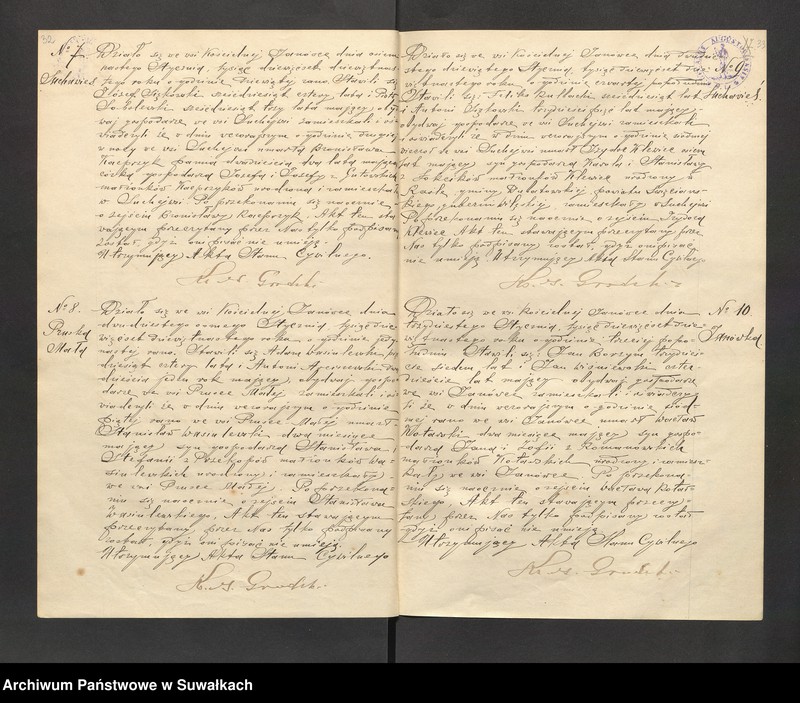 32
Nº 7.
Suchowiel
Działo się we wsi Kościelnej Janówce dnia osiem
nastego Stycznia, tysiąc dziewięćset dziewiętnas
tego roku o godzinie dziewiątej rano. Stawili się
Józef Szykowski sześćdziesiąt cztery lata i
Sokolewski sześćdziesiąt trzy lata mający oby
dwaj gospodarze we wsi Suchejwsi zamieszkali i oś
wiadczyli że w dniu wczorajszym o godzinie drugiej
w nocy we wsi Suchejwsi umarła Bronisława
Kacprzyk panna dwadzieścia dwa lata mająca
córka gospodarza Józefa i Józefy z
małżonków Kacprzyków urodzona i zamieszkała
w Suchejwsi. Po przekonaniu się naocznie
o zejściu Bronisławy Kacprzyk. Akt ten sta
wającym przeczytany przez Nas tylko podpisany
został, gdyż oni pisać nie umieją.
Utrzymujący Akta Stanu Cywilnego.
Nº 8.
Pruska
Mała
Działo się we wsi Kościelnej Janówce dnia
dwudziestego ósmego Stycznia, tysiąc dzie
więćset dziewiętnastego roku o godzinie jedy
nastej rano. Stawili się Adam Wasilewski
dziesiąt cztery lata i Antoni
dzieścia jeden rok mający, obydwaj gospo
darze we wsi Prusce Małej zamieszkali i oś
wiadczyli że w dniu wczorajszym o godzinie
piątej rano we wsi Prusce Małej umarł
Stanisław Wasilewski dwa miesiące
mający syn gospodarza Stanisława i
Stefanii z małżonków Wa
silewskich urodzony i zamieszkały
we wsi Prusce Małej. Po przekona
niu się naocznie o zejściu Stanisława
Wasilewskiego, Akt ten stawającym
przeczytany przez Nas tylko podpisany
został, gdyż oni pisać nie umieją.
Utrzymujący Akta Stanu Cywilnego
33
Nº 9.
Suchowiel
Działo się we wsi Kościelnej Janówce dnia dwudzie
stego dziewiątego Stycznia, tysiąc dziewięćset dzie
więtnastego roku o godzinie czwartej popołudniu
Stawili się: Feliks sześćdziesiąt lat
i Antoni Szykowski lat mający
obydwaj gospodarze we wsi Suchejwsi zamieszkali
i oświadczyli że w dniu wczorajszym o godzinie ósmej
wieczór we wsi Suchejwsi umarł Izydor Klewiec
lat mający syn gospodarza Karola i Stanisławy
z małżonków Klewiec urodzony w
gminy powiatu
gubernii zamieszkały w Suchejwsi
Po przekonaniu się naocznie o zejściu Izydora
Klewiec Akt ten stawającym przeczytany przez
Nas tylko podpisany został, gdyż oni pisać
nie umieją Utrzymujący Akta Stanu Cywilnego
Nº 10
Janówka
Działo się we wsi Kościelnej Janówce dnia
trzydziestego Stycznia, tysiąc dziewięćset dzie
więtnastego roku o godzinie trzeciej popo
łudniu Stawili się: Jan
siedem lat i Jan Wiśniewski czter
dzieście lat mający obydwaj gospodarze
we wsi Janówce zamieszkali i oświadczy
li że w dniu wczorajszym o godzinie siód
mej rano we wsi Janówce umarł Wacław
Kotarski dwa miesiące mający syn gospo
darza Jana i Zofii z Romanowskich
małżonków Kotarskich urodzony i zamiesz
kały we wsi Janówce. Po przekona
niu się naocznie o zejściu Wacława Kotar
skiego, Akt ten stawającym przeczy
tany przez Nas tylko podpisany został
gdyż oni pisać nie umieją
Utrzymujący Akta Stanu Cywilnego
Archiwum Państwowe w Suwałkach